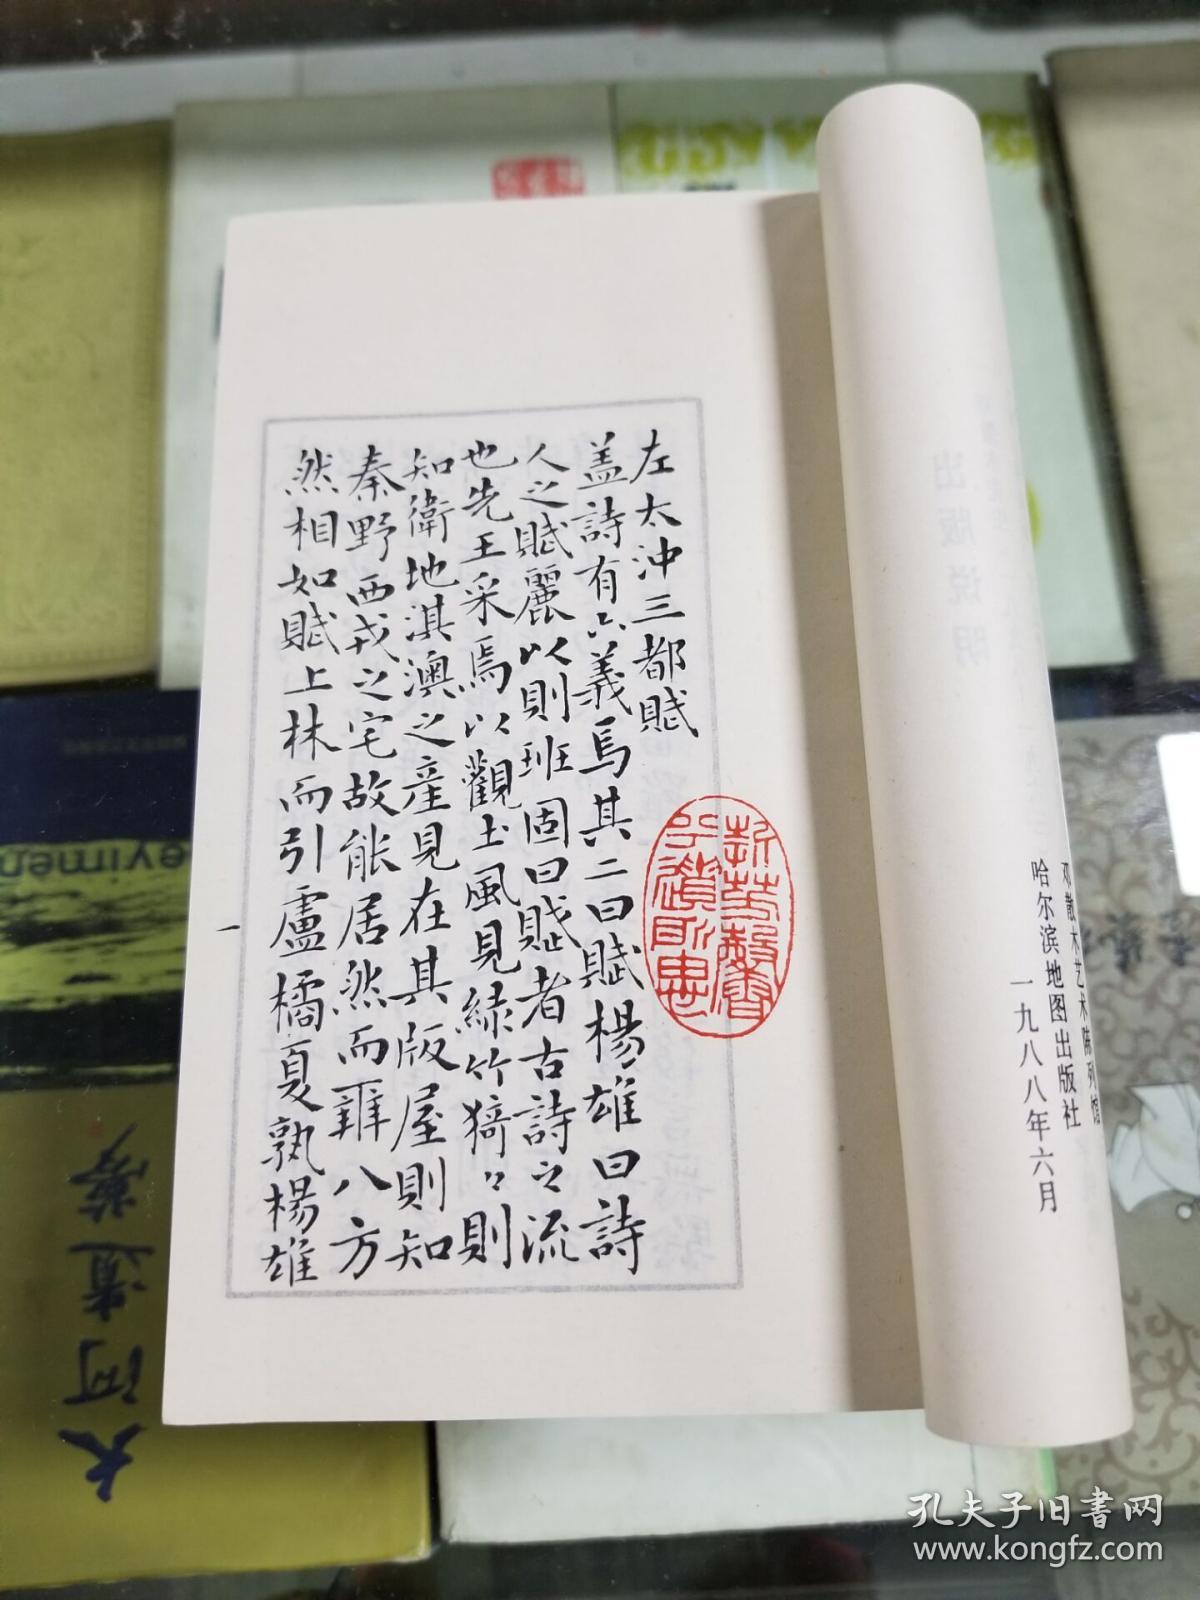 左太沖三都賦
盖詩有六義焉其二曰賦楊雄曰詩
人之賦麗以則班固曰賦者古詩之流
也先王采焉以觀土風見緑竹猗〻則
知衛地淇澳之産見在其版屋則知
秦野西戎之宅故能居然而辨八方
然相如賦上林而引盧橘夏孰楊雄
一
出版说明
邓散木艺术陈列馆
哈尔滨地图出版社
一九八八年六月
大河道梦
eyimen
孔夫子旧书网
www.kongfz.com